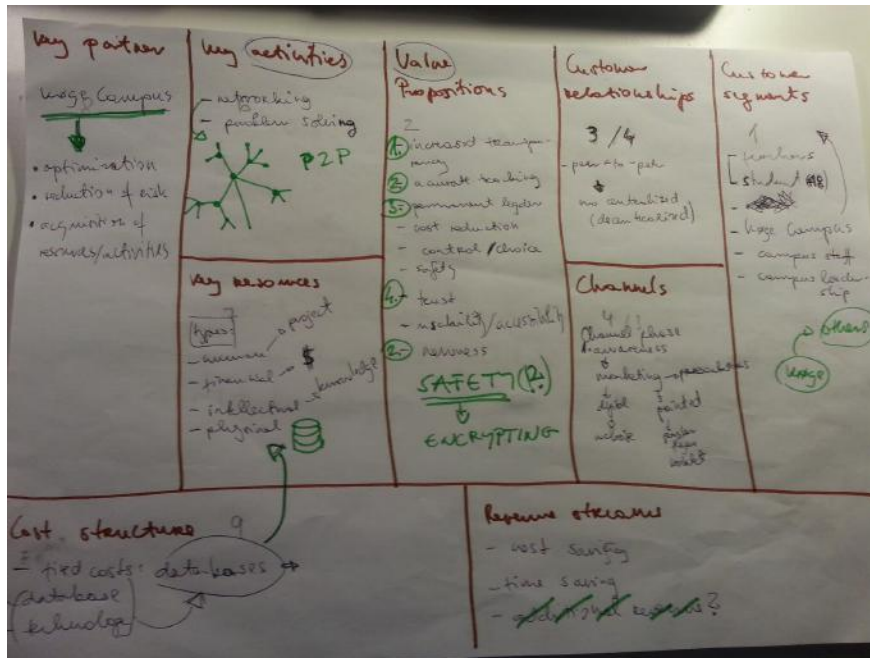 Key partner
Campus
• optimization
• reduction of risk
• acquisition of
resources/activities
Key activities
- networking
- problem solving
P2P
Key resources
7
types:
- human → project
- financial → $
- intellectual → knowledge
- physical
Value
Propositions
2
1. increased transpa-
rency
2. accurate tracking
3. permanent ledger
- cost reduction
- control / choice
- safety
4. - trust
- usability/accessibility
2. - newness
SAFETY (2.)
ENCRYPTING
Customer
relationships
3 / 4
- peer-to-peer
no centralized
(decentralized)
Channels
4
Channel phase
1. awareness
marketing
digital printed
website
Customer
segments
1
teachers
student (18)
- Campus
- campus staff
- campus leader-
ship
others
Cost structure 9
- fixed costs: databases
- database
- technology
Revenue streams
- cost saving
- time saving